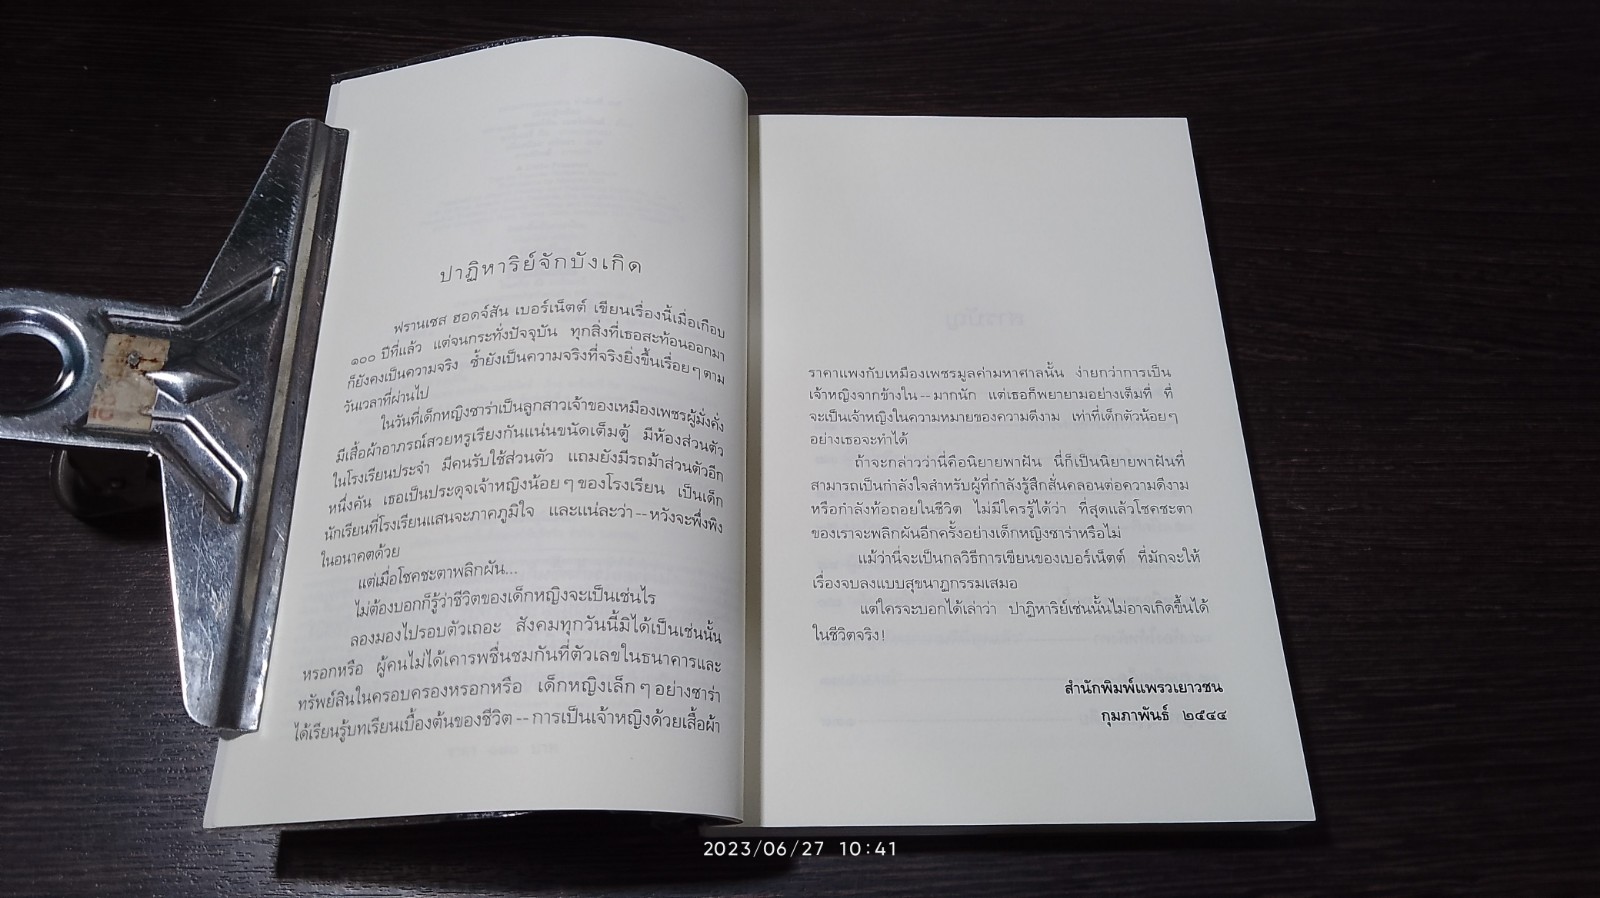 ปาฏิหาริย์จักบังเกิด
ฟรานเซส ฮอดจ์สัน เบอร์เน็ตต์ เขียนเรื่องนี้เมื่อเกือบ
๑๐๐ ปีที่แล้ว แต่จนกระทั่งปัจจุบัน ทุกสิ่งที่เธอสะท้อนออกมา
ก็ยังคงเป็นความจริง ซ้ำยังเป็นความจริงที่จริงยิ่งขึ้นเรื่อยๆ ตาม
วันเวลาที่ผ่านไป
ในวันที่เด็กหญิงซาร่าเป็นลูกสาวเจ้าของเหมืองเพชรผู้มั่งคั่ง
มีเสื้อผ้าอาภรณ์สวยหรูเรียงกันแน่นขนัดเต็มตู้ มีห้องส่วนตัว
ในโรงเรียนประจำ มีคนรับใช้ส่วนตัว แถมยังมีรถม้าส่วนตัวอีก
หนึ่งคัน เธอเป็นประดุจเจ้าหญิงน้อยๆ ของโรงเรียน เป็นเด็ก
นักเรียนที่โรงเรียนแสนจะภาคภูมิใจ และแน่ละว่า -- หวังจะพึ่งพิง
ในอนาคตด้วย
แต่เมื่อโชคชะตาพลิกผัน...
ไม่ต้องบอกก็รู้ว่าชีวิตของเด็กหญิงจะเป็นเช่นไร
ลองมองไปรอบตัวเถอะ สังคมทุกวันนี้มิได้เป็นเช่นนั้น
หรอกหรือ ผู้คนไม่ได้เคารพชื่นชมกันที่ตัวเลขในธนาคารและ
ทรัพย์สินในครอบครองหรอกหรือ เด็กหญิงเล็กๆ อย่างซาร่า
ได้เรียนรู้บทเรียนเบื้องต้นของชีวิต -- การเป็นเจ้าหญิงด้วยเสื้อผ้า
ราคาแพงกับเหมืองเพชรมูลค่ามหาศาลนั้น ง่ายกว่าการเป็น
เจ้าหญิงจากข้างใน -- มากนัก แต่เธอก็พยายามอย่างเต็มที่ ที่
จะเป็นเจ้าหญิงในความหมายของความดีงาม เท่าที่เด็กตัวน้อยๆ
อย่างเธอจะทำได้
ถ้าจะกล่าวว่านี่คือนิยายพาฝัน นี่ก็เป็นนิยายพาฝันที่
สามารถเป็นกำลังใจสำหรับผู้ที่กำลังรู้สึกสั่นคลอนต่อความดีงาม
หรือกำลังท้อถอยในชีวิต ไม่มีใครรู้ได้ว่า ที่สุดแล้วโชคชะตา
ของเราจะพลิกผันอีกครั้งอย่างเด็กหญิงซาร่าหรือไม่
แม้ว่านี่จะเป็นกลวิธีการเขียนของเบอร์เน็ตต์ ที่มักจะให้
เรื่องจบลงแบบสุขนาฏกรรมเสมอ
แต่ใครจะบอกได้เล่าว่า ปาฏิหาริย์เช่นนั้นไม่อาจเกิดขึ้นได้
ในชีวิตจริง!
สำนักพิมพ์แพรวเยาวชน
กุมภาพันธ์ ๒๕๔๔
2023/06/27 10:41